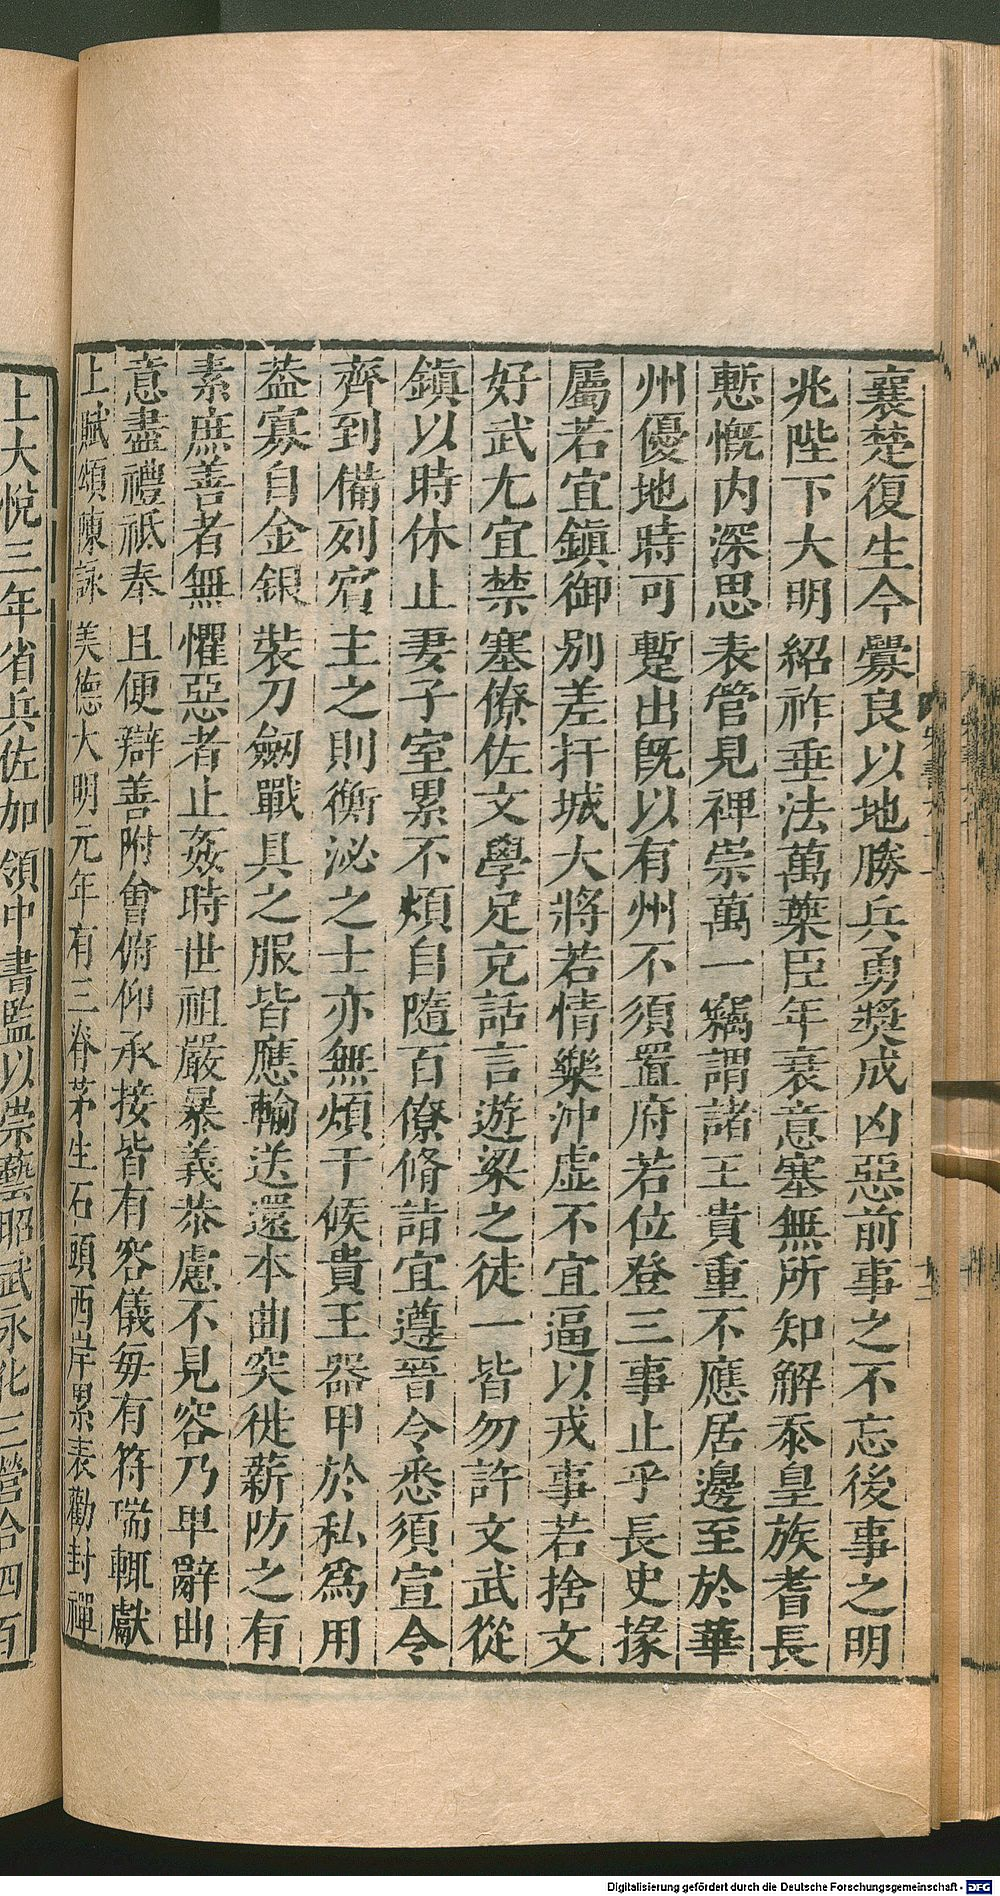 襄楚復生今釁良以地勝兵勇獎成凶惡前事之不忘後事之明
兆陛下大明紹祚垂法萬葉臣年衰意塞無所知解忝皇族耆長
慙慨内深思表管見裨崇萬一竊謂諸王貴重不應居邊至於華
州優地時可蹔出旣以有州不須置府若位登三事止乎長史掾
屬若宜鎭御别差扞城大將若情樂沖虛不宜逼以戎事若捨文
好武尤宜禁塞僚佐文學足充話言遊梁之徒一皆勿許文武從
鎭以時休止妻子室累不煩自隨百僚脩詣宜遵晉令悉須宣令
齊到備列賓主之則衡泌之士亦無煩干候貴王器甲於私爲用
葢寡自金銀裝刀劒戰具之服皆應輸送還本曲突徙薪防之有
素庶善者無懼惡者止姦時世祖嚴暴義恭慮不見容乃卑辭曲
意盡禮祗奉且便辯善附會俯仰承接皆有容儀每有符瑞輒獻
上賦頌陳詠美德大明元年有三脊茅生石頭西岸累表勸封禪
上大悅三年省兵佐加領中書監以崇藝昭武永化三營合四百
Digitalisierung gefördert durch die Deutsche Forschungsgemeinschaft - DFG